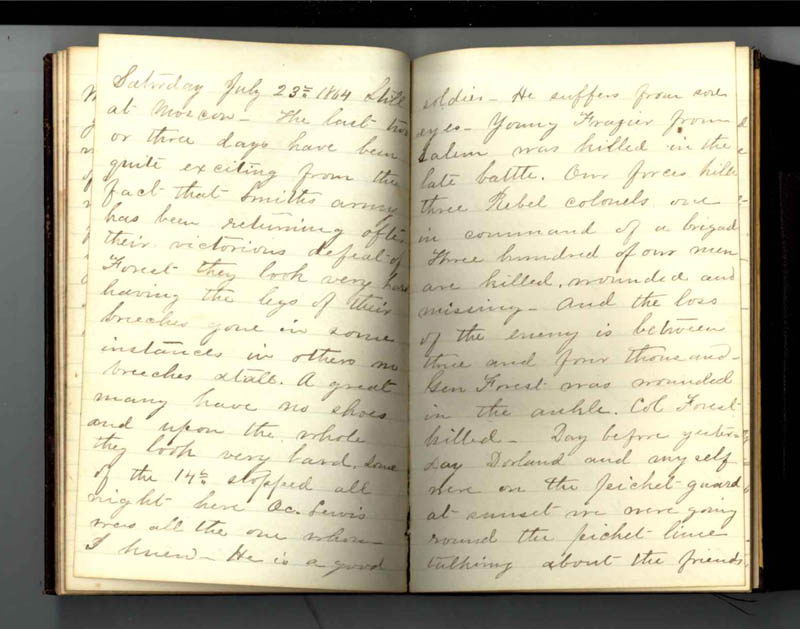 Saturday July 23rd 1864 Still
at Moscow - The last two
or three days have been
quite exciting from the
fact that Smiths army
has been returning after
their victorious defeat of
Forest they look very hard
having the legs of their
breeches gone in some
instances in others no
breeches atall. A great
many have no shoes
and upon the whole
they look very hard. Some
of the 14th stopped all
night here Oc. Lewis
was all the one whom
I knew - He is a good
soldier - He suffers from sore
eyes - Young Frazier from
Salem was killed in the
late battle. Our forces kille
three Rebel colonels one
in command of a brigad
Three hundred of our men
are killed, wounded and
missing - And the loss
of the enemy is between
three and four thousand -
Gen Forest was wounded
in the ankle. Col Forest
killed - Day before yester=
day Dorland and myself
were on the picket guard
at sunset we were going
round the picket line
talking about the friends